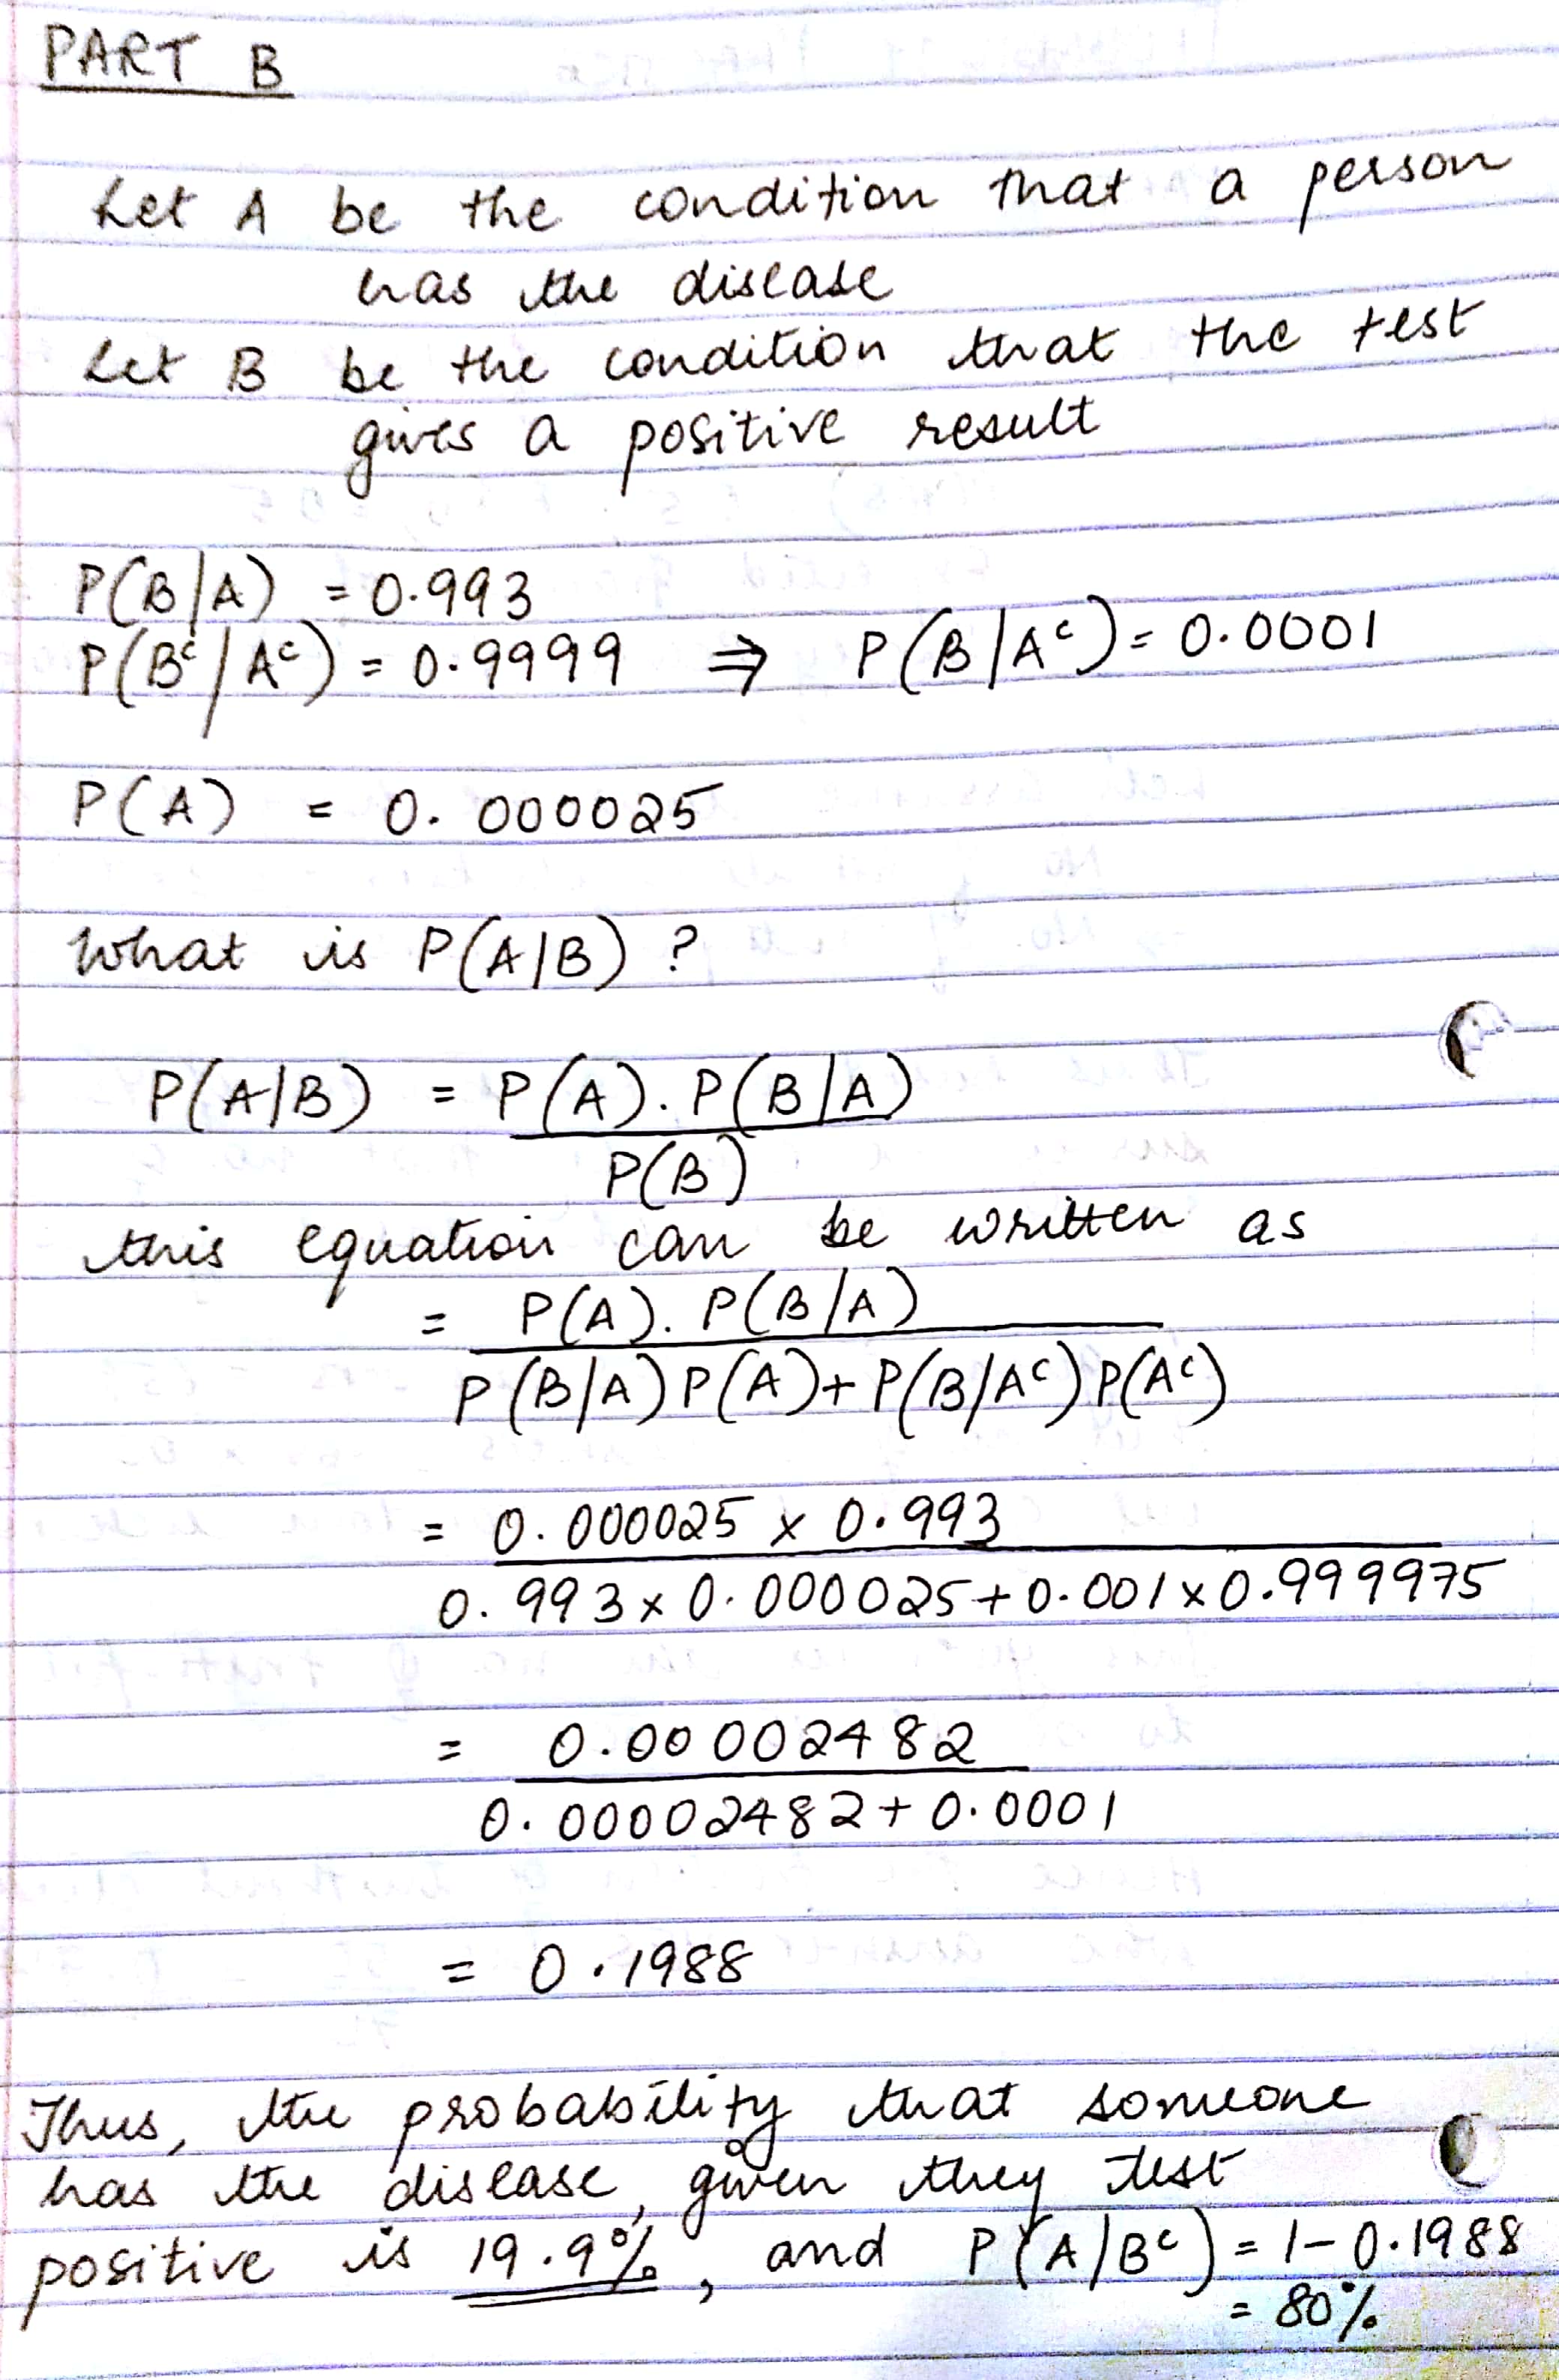 PART B
Let A be the condition that a person
has the disease
Let B be the condition that the test
gives a positive result
P(B|A) = 0.993
P(Bᶜ|Aᶜ) = 0.9999 ⇒ P(B|Aᶜ) = 0.0001
P(A) = 0.000025
What is P(A|B) ?
P(A|B) = P(A). P(B|A)
P(B)
this equation can be written as
= P(A). P(B|A)
P(B|A) P(A) + P(B|Aᶜ) P(Aᶜ)
= 0.000025 x 0.993
0.993 x 0.000025 + 0.001 x 0.999975
= 0.00002482
0.00002482 + 0.0001
= 0.1988
Thus, the probability that someone
has the disease, given they test
positive is 19.9%, and P(A|Bᶜ) = 1 - 0.1988
= 80%